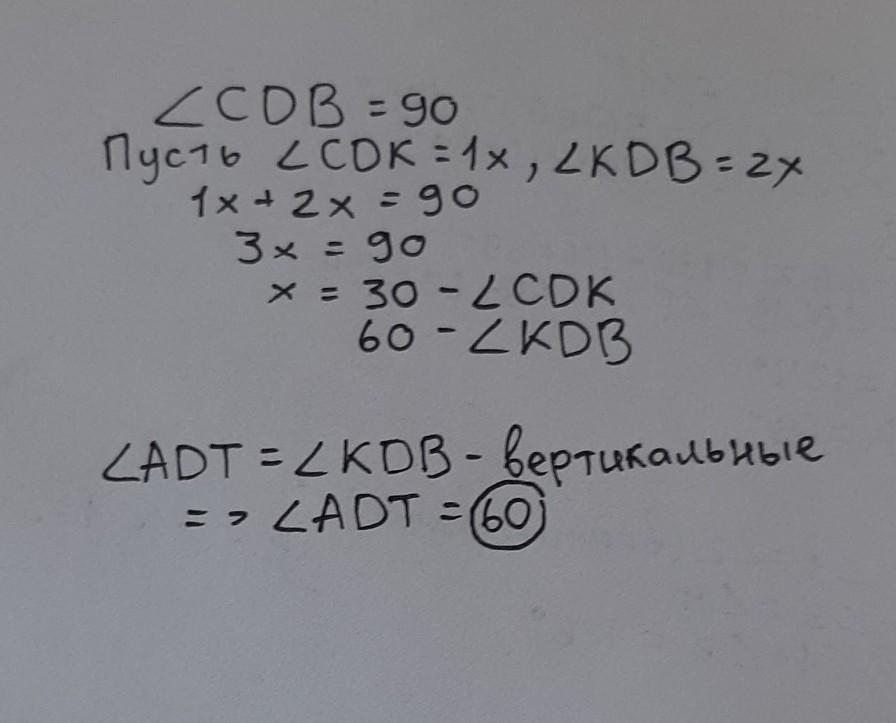 ∠CDB = 90
Пусть ∠CDK = 1x, ∠KDB = 2x
1x + 2x = 90
3x = 90
x = 30 - ∠CDK
60 - ∠KDB
∠ADT = ∠KDB - вертикальные
=> ∠ADT = 60